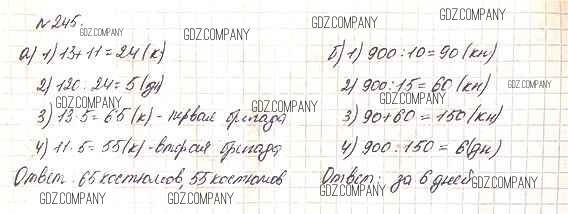 №245.
а) 1) 13+11=24 (к)
2) 120:24=5 (дн)
3) 13·5=65 (к) - первая бригада
4) 11·5=55 (к) - вторая бригада
Ответ: 65 костюмов, 55 костюмов
б) 1) 900:10=90 (кн)
2) 900:15=60 (кн)
3) 90+60=150 (кн)
4) 900:150=6 (дн)
Ответ: за 6 дней
GDZ.COMPANY
GDZ.COMPANY
GDZ.COMPANY
GDZ.COMPANY
GDZ.COMPANY
GDZ.COMPANY
GDZ.COMPANY
GDZ.COMPANY
GDZ.COMPANY
GDZ.COMPANY
GDZ.COMPANY
GDZ.COMPANY
GDZ.COMPANY